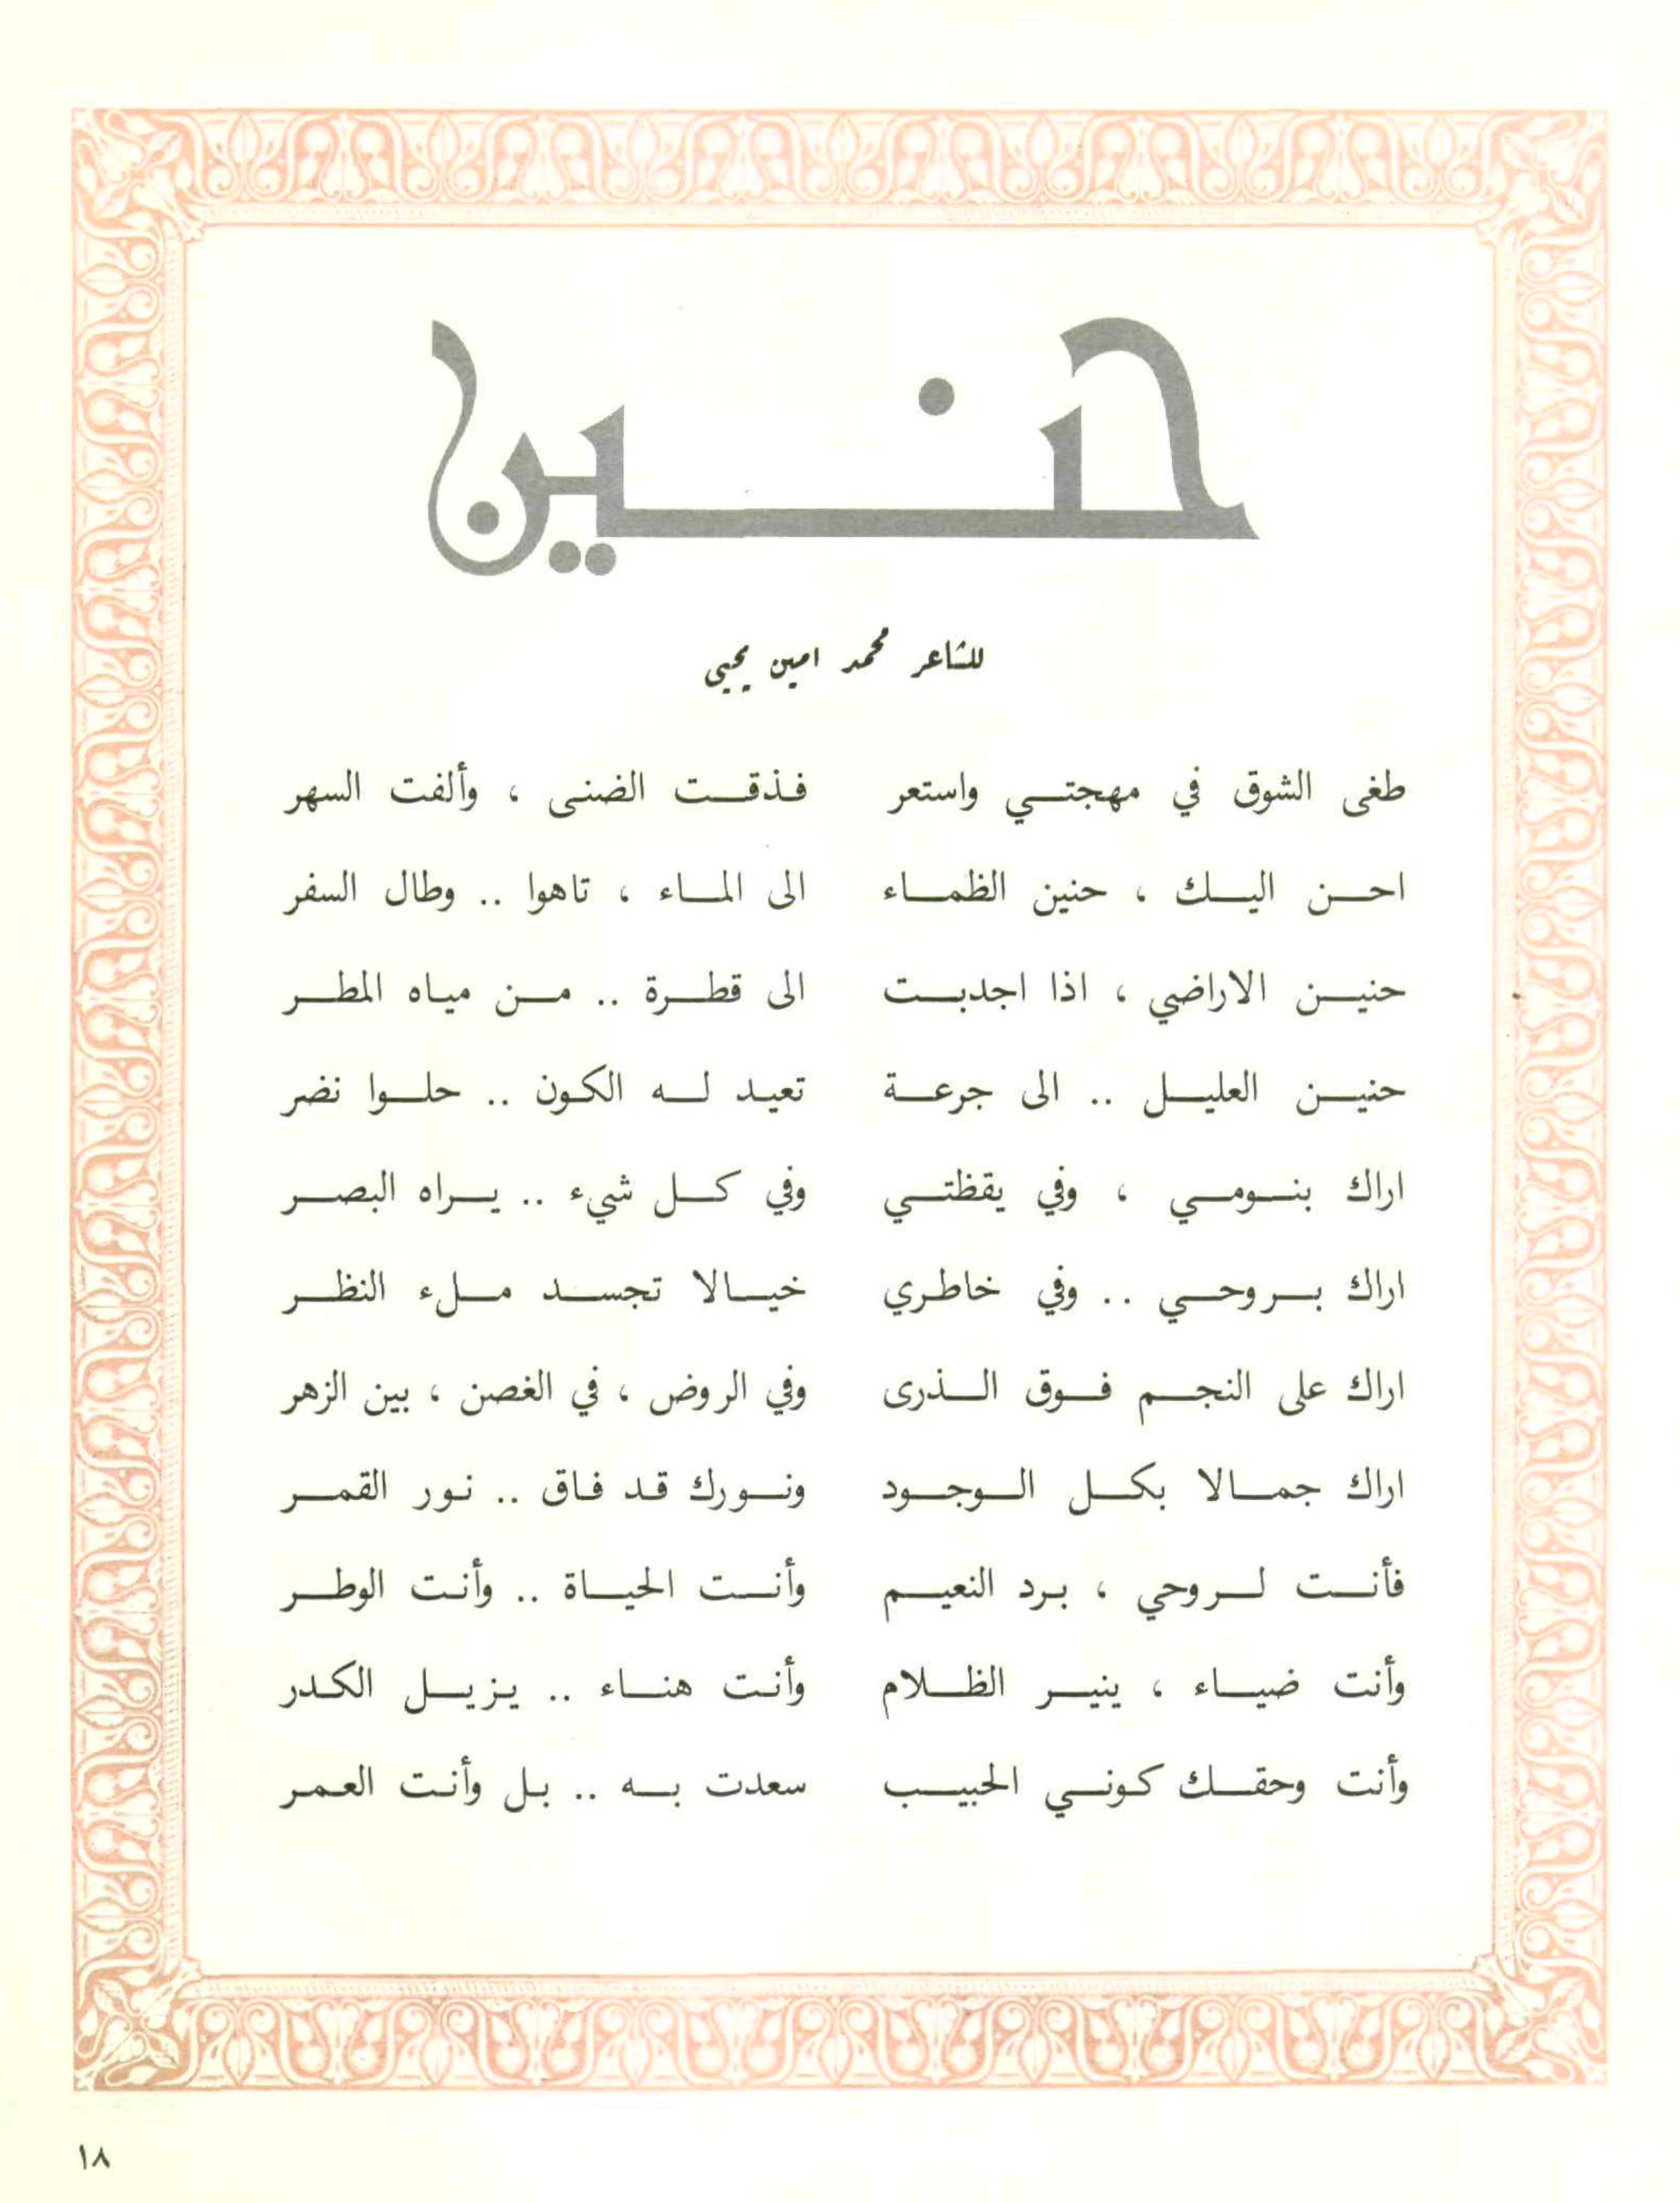 حنين
للشاعر محمد امين يحيى
طغى الشوق في مهجتي واستعر فذقت الضنى ، وألفت السهر
احن اليك ، حنين الظماء الى الماء ، تاهوا .. وطال السفر
حنين الاراضي ، اذا اجدبت الى قطرة .. من مياه المطر
حنين العليل .. الى جرعة تعيد له الكون .. حلوا نضر
اراك بنومي ، وفي يقظتي وفي كل شيء .. يراه البصر
اراك بروحي .. وفي خاطري خيالا تجسد ملء النظر
اراك على النجم فوق الذرى وفي الروض ، في الغصن ، بين الزهر
اراك جمالا بكل الوجود ونورك قد فاق .. نور القمر
فأنت لروحي ، برد النعيم وأنت الحياة .. وأنت الوطر
وأنت ضياء ، ينير الظلام وأنت هناء .. يزيل الكدر
وأنت وحقك كوني الحبيب سعدت به .. بل وأنت العمر
١٨